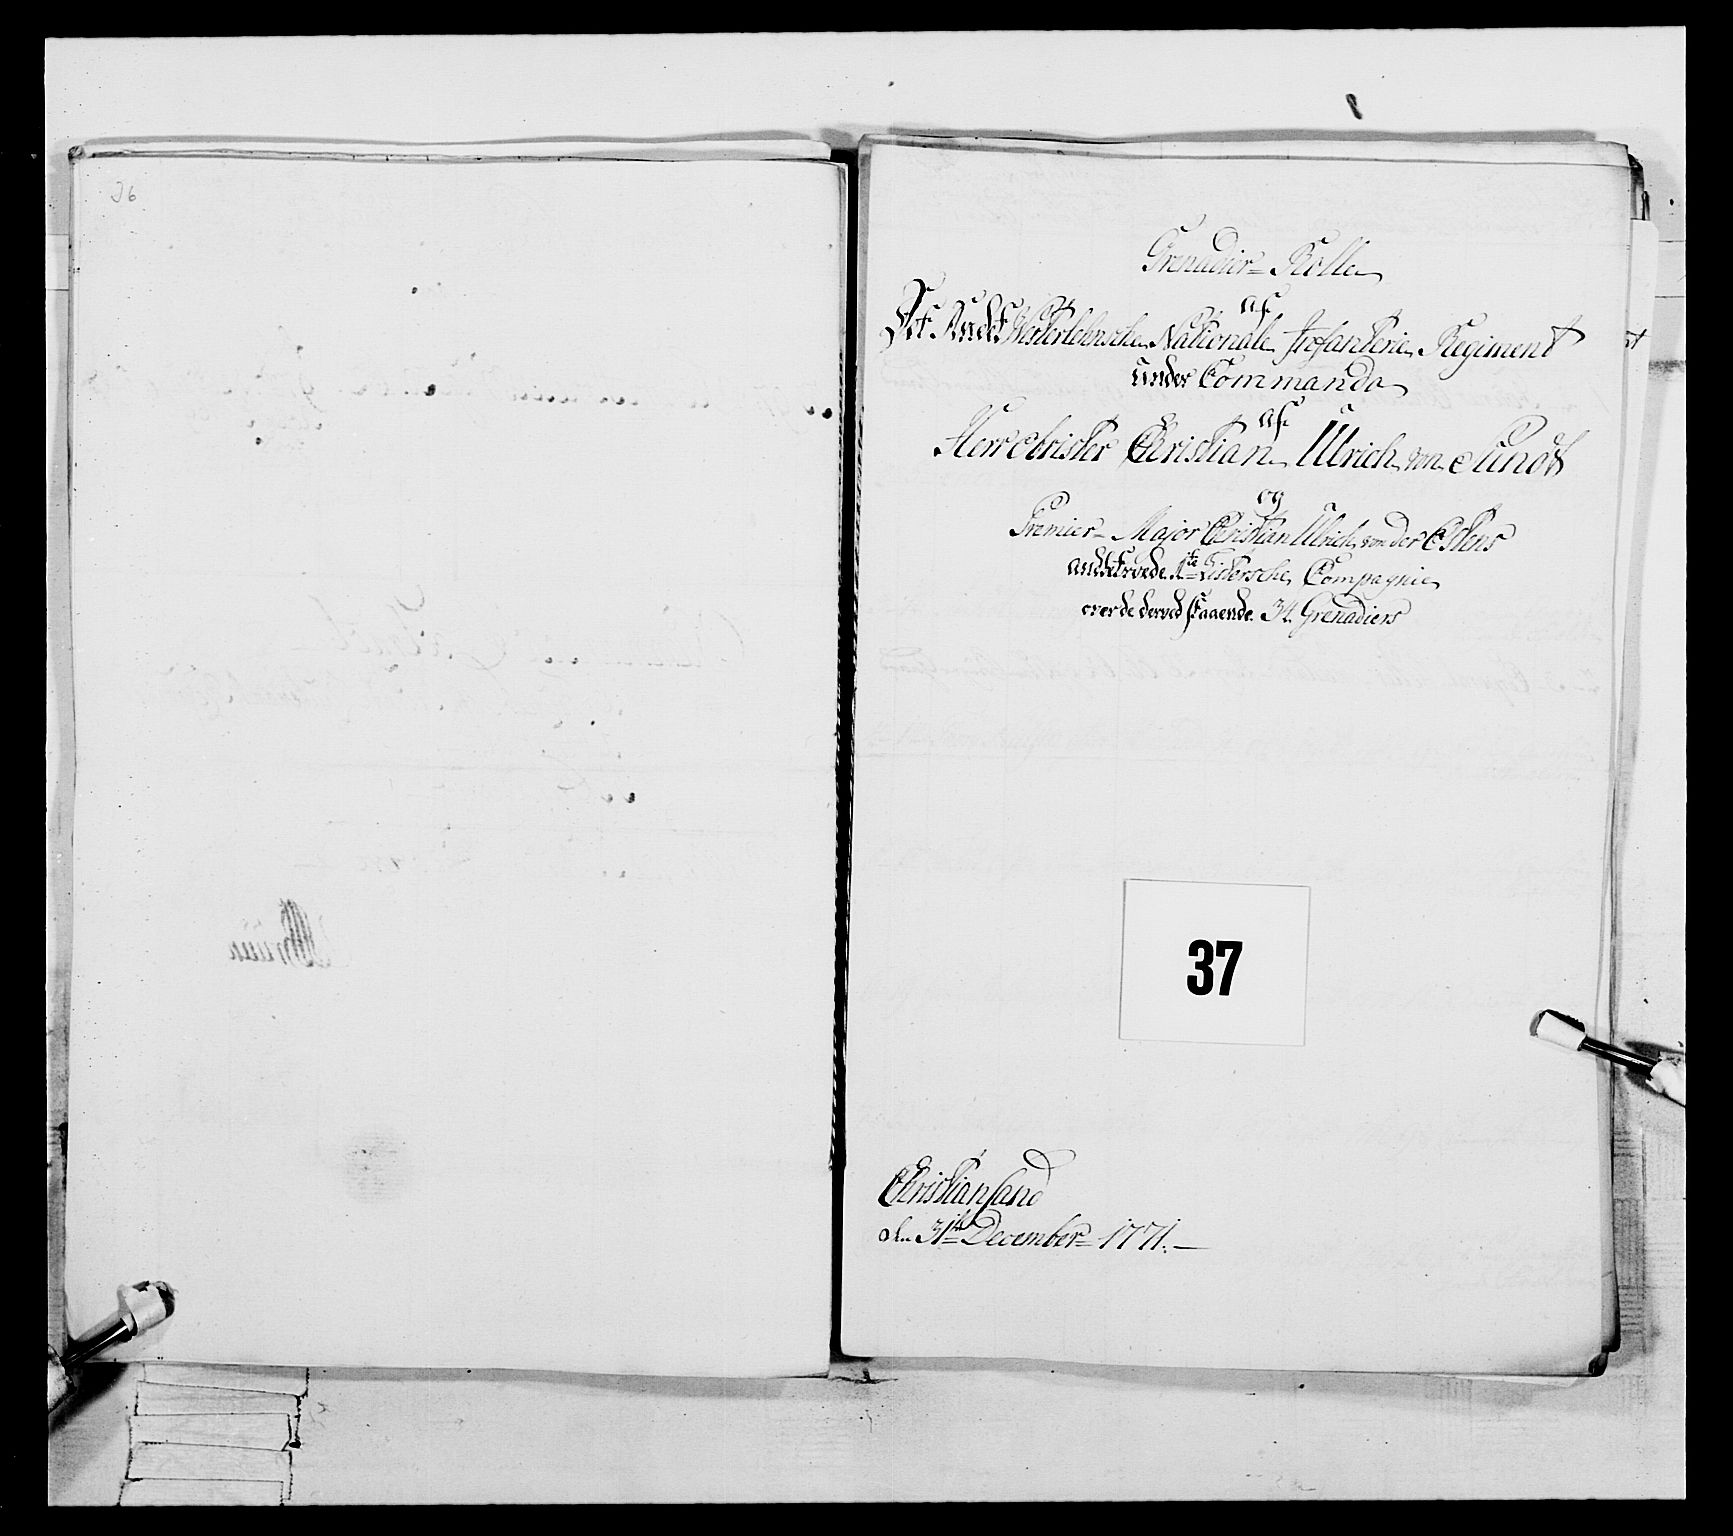 36
Grenadier= Rolle
af
Det Andet Westerlehnske Nationale Infanterie Regiment
under Commando
af
Herr Obrister Christian Ulrich von Sundt
og
Premier= Major Christian Ulrich von der Ostens
andetroede 1ste Listerske Compagnie
over de derved staaende 34 Grenadiers
37
Christiansand
den 31te December 1771.